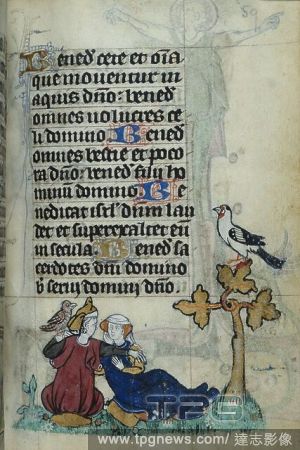 Bened cete et oīa
que moventur in
aquis dño: bened
omnes volucres ce
li domino Bened
omnes bestie et peco
ra dño: bened filii ho
minū domino Be
nedicat isrl dñm lau
det et superexaltet eū
in secula Bened sa
cerdotes dñi domino
b servi domini dño.
TPG
www.tpgnews.com/ 達志影像